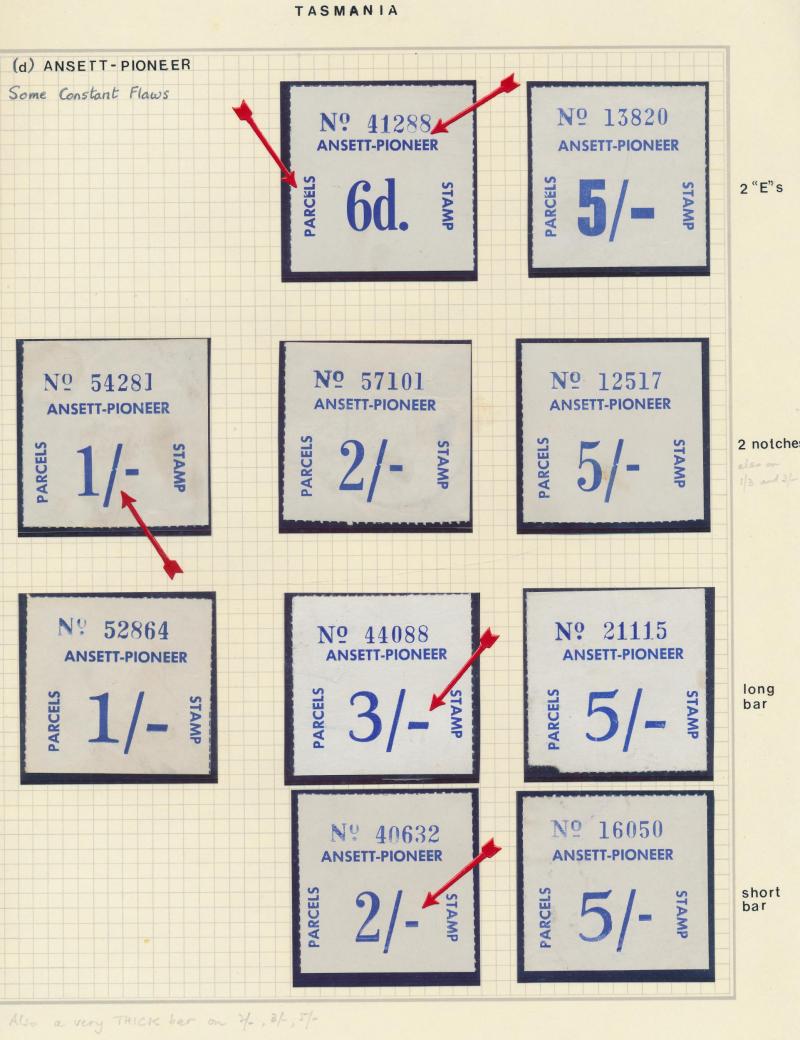 TASMANIA
(d) ANSETT-PIONEER
Some Constant Flaws
Nº 41288
ANSETT-PIONEER
PARCELS
6d.
STAMP
Nº 13820
ANSETT-PIONEER
PARCELS
5/-
STAMP
2 "E"s
Nº 54281
ANSETT-PIONEER
PARCELS
1/-
STAMP
Nº 57101
ANSETT-PIONEER
PARCELS
2/-
STAMP
Nº 12517
ANSETT-PIONEER
PARCELS
5/-
STAMP
2 notche
also on
1/3 and 2/-
Nº 52864
ANSETT-PIONEER
PARCELS
1/-
STAMP
Nº 44088
ANSETT-PIONEER
PARCELS
3/-
STAMP
Nº 21115
ANSETT-PIONEER
PARCELS
5/-
STAMP
long
bar
Nº 40632
ANSETT-PIONEER
PARCELS
2/-
STAMP
Nº 16050
ANSETT-PIONEER
PARCELS
5/-
STAMP
short
bar
Also a very THICK bar on 2/-, 3/-, 5/-